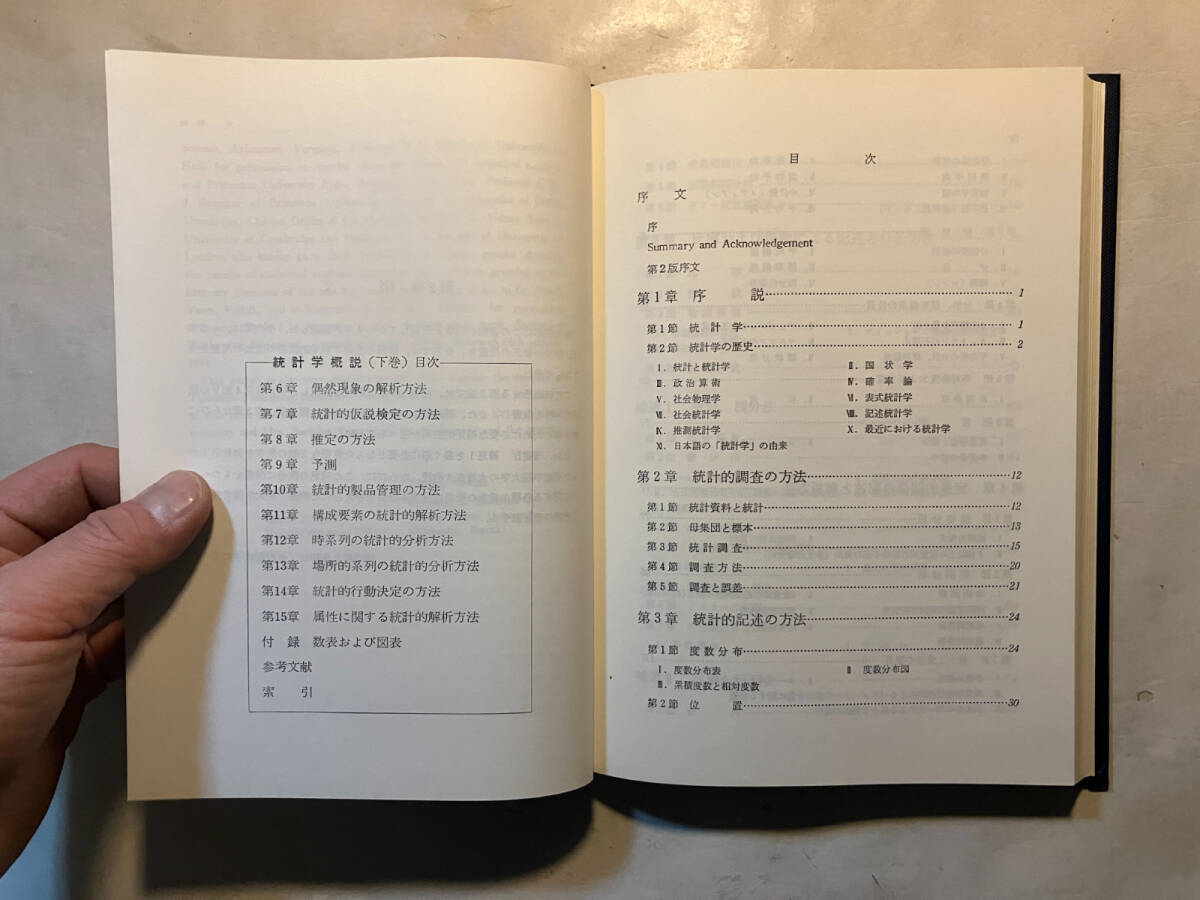 統計学概説（下巻）目次
第6章 偶然現象の解析方法
第7章 統計的仮説検定の方法
第8章 推定の方法
第9章 予測
第10章 統計的製品管理の方法
第11章 構成要素の統計的解析方法
第12章 時系列の統計的分析方法
第13章 場所的系列の統計的分析方法
第14章 統計的行動決定の方法
第15章 属性に関する統計的解析方法
付録 数表および図表
参考文献
索引
目次
序文
序
Summary and Acknowledgement
第2版序文
第1章 序説……1
第1節 統計学……1
第2節 統計学の歴史……2
Ⅰ. 統計と統計学 Ⅱ. 国状学
Ⅲ. 政治算術 Ⅳ. 確率論
Ⅴ. 社会物理学 Ⅵ. 表式統計学
Ⅶ. 社会統計学 Ⅷ. 記述統計学
Ⅸ. 推測統計学 Ⅹ. 最近における統計学
Ⅺ. 日本語の「統計学」の由来
第2章 統計的調査の方法……12
第1節 統計資料と統計……12
第2節 母集団と標本……13
第3節 統計調査……15
第4節 調査方法……20
第5節 調査と誤差……21
第3章 統計的記述の方法……24
第1節 度数分布……24
Ⅰ. 度数分布表 Ⅱ 度数分布図
Ⅲ. 累積度数と相対度数
第2節 位置……30